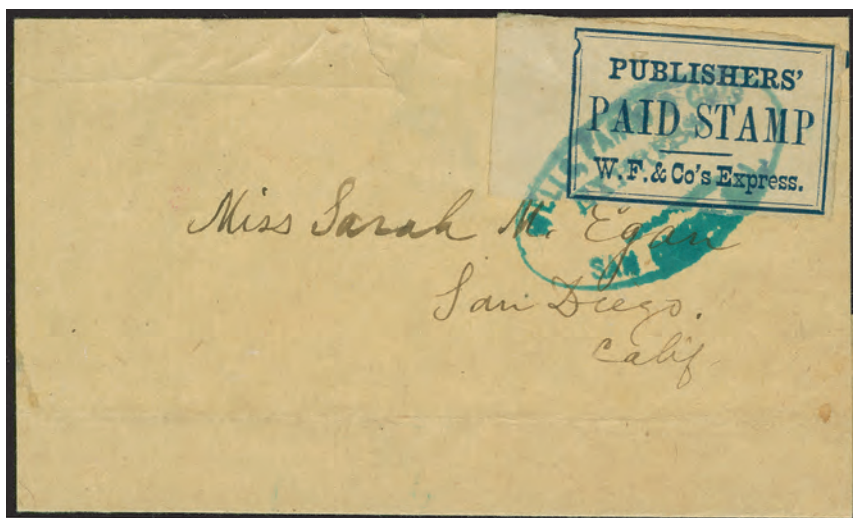 PUBLISHERS'
PAID STAMP
W. F. & Co's Express.
WELLS
SAN
Miss Sarah M. Egan
San Diego.
Calif